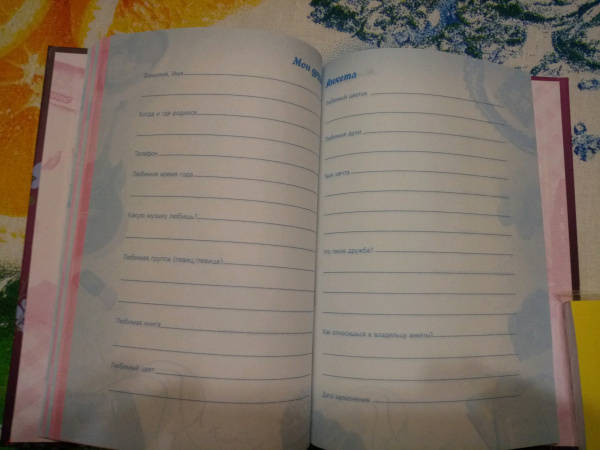 Мои
Фамилия, Имя
Когда и где родился
Телефон
Любимое время года
Какую музыку любишь?
Любимая группа (певец/певица)
Любимая книга
Любимый цвет
Анкета
Любимый цветок
Любимые духи
Твоя мечта
Что такое дружба?
Как относишься к владельцу анкеты?
Дата заполнения